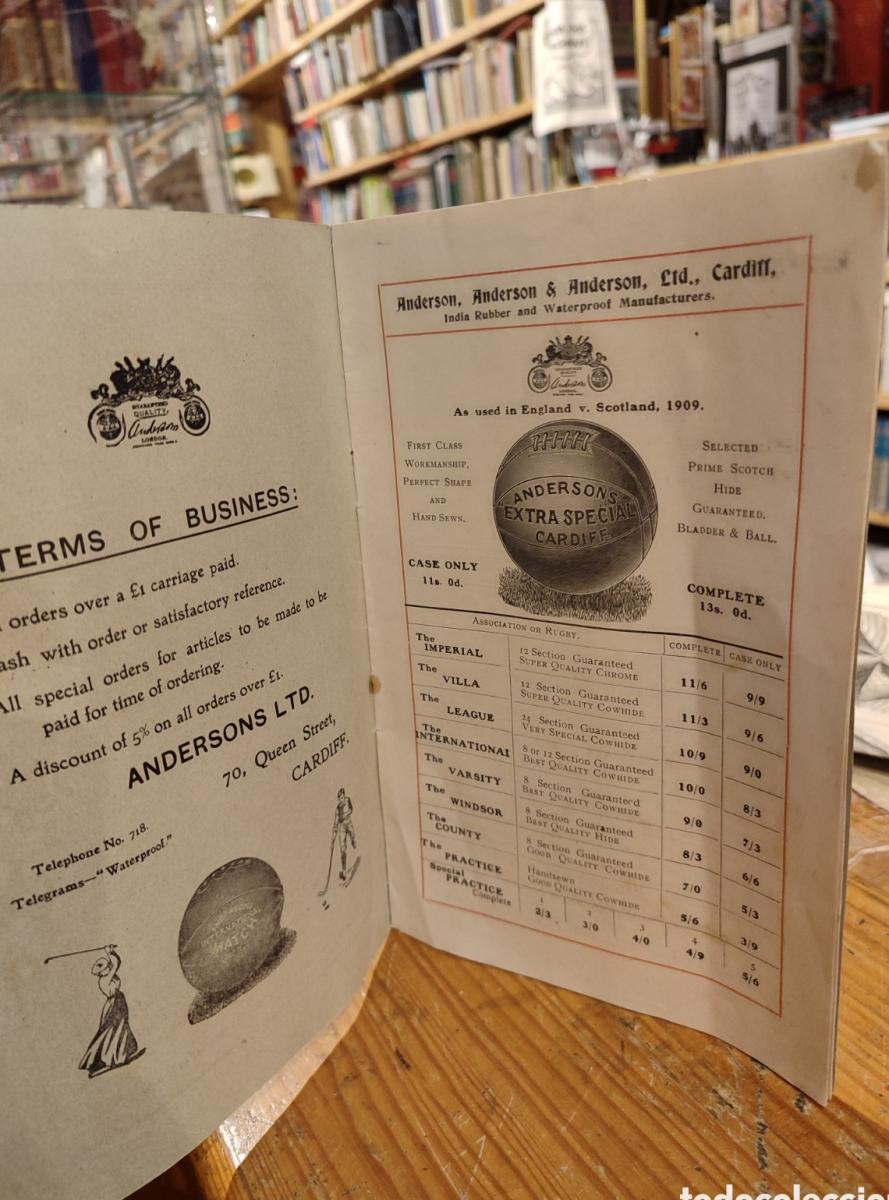 GUARANTEED
QUALITY.
Andersons
LONDON.
TERMS OF BUSINESS:
orders over a £1 carriage paid.
ash with order or satisfactory reference.
All special orders for articles to be made to be
paid for time of ordering.
A discount of 5% on all orders over £1.
ANDERSONS LTD.
70, Queen Street,
CARDIFF.
Telephone No. 718.
Telegrams—"Waterproof."
MATCH
Anderson, Anderson & Anderson, Ltd., Cardiff,
India Rubber and Waterproof Manufacturers.
Andersons
As used in England v. Scotland, 1909.
FIRST CLASS
WORKMANSHIP,
PERFECT SHAPE
AND
HAND SEWN.
CASE ONLY
11s. 0d.
ANDERSONS'
"EXTRA SPECIAL"
CARDIFF
SELECTED
PRIME SCOTCH
HIDE
GUARANTEED.
BLADDER & BALL.
COMPLETE
13s. 0d.
ASSOCIATION OR RUGBY. COMPLETE CASE ONLY
The IMPERIAL 12 Section Guaranteed SUPER QUALITY CHROME 11/6 9/9
The VILLA 12 Section Guaranteed SUPER QUALITY COWHIDE 11/3 9/6
The LEAGUE 24 Section Guaranteed VERY SPECIAL COWHIDE 10/9 9/0
The INTERNATIONAL 8 or 12 Section Guaranteed BEST QUALITY COWHIDE 10/0 8/3
The VARSITY 8 Section Guaranteed BEST QUALITY COWHIDE 9/0 7/3
The WINDSOR 8 Section Guaranteed BEST QUALITY HIDE 8/3 6/6
The COUNTY 8 Section Guaranteed GOOD QUALITY COWHIDE 7/0 5/3
The PRACTICE Handsewn GOOD QUALITY COWHIDE 5/6 3/9
Special PRACTICE Complete 1 2/3 2 3/0 3 4/0 4 4/9 5 5/6